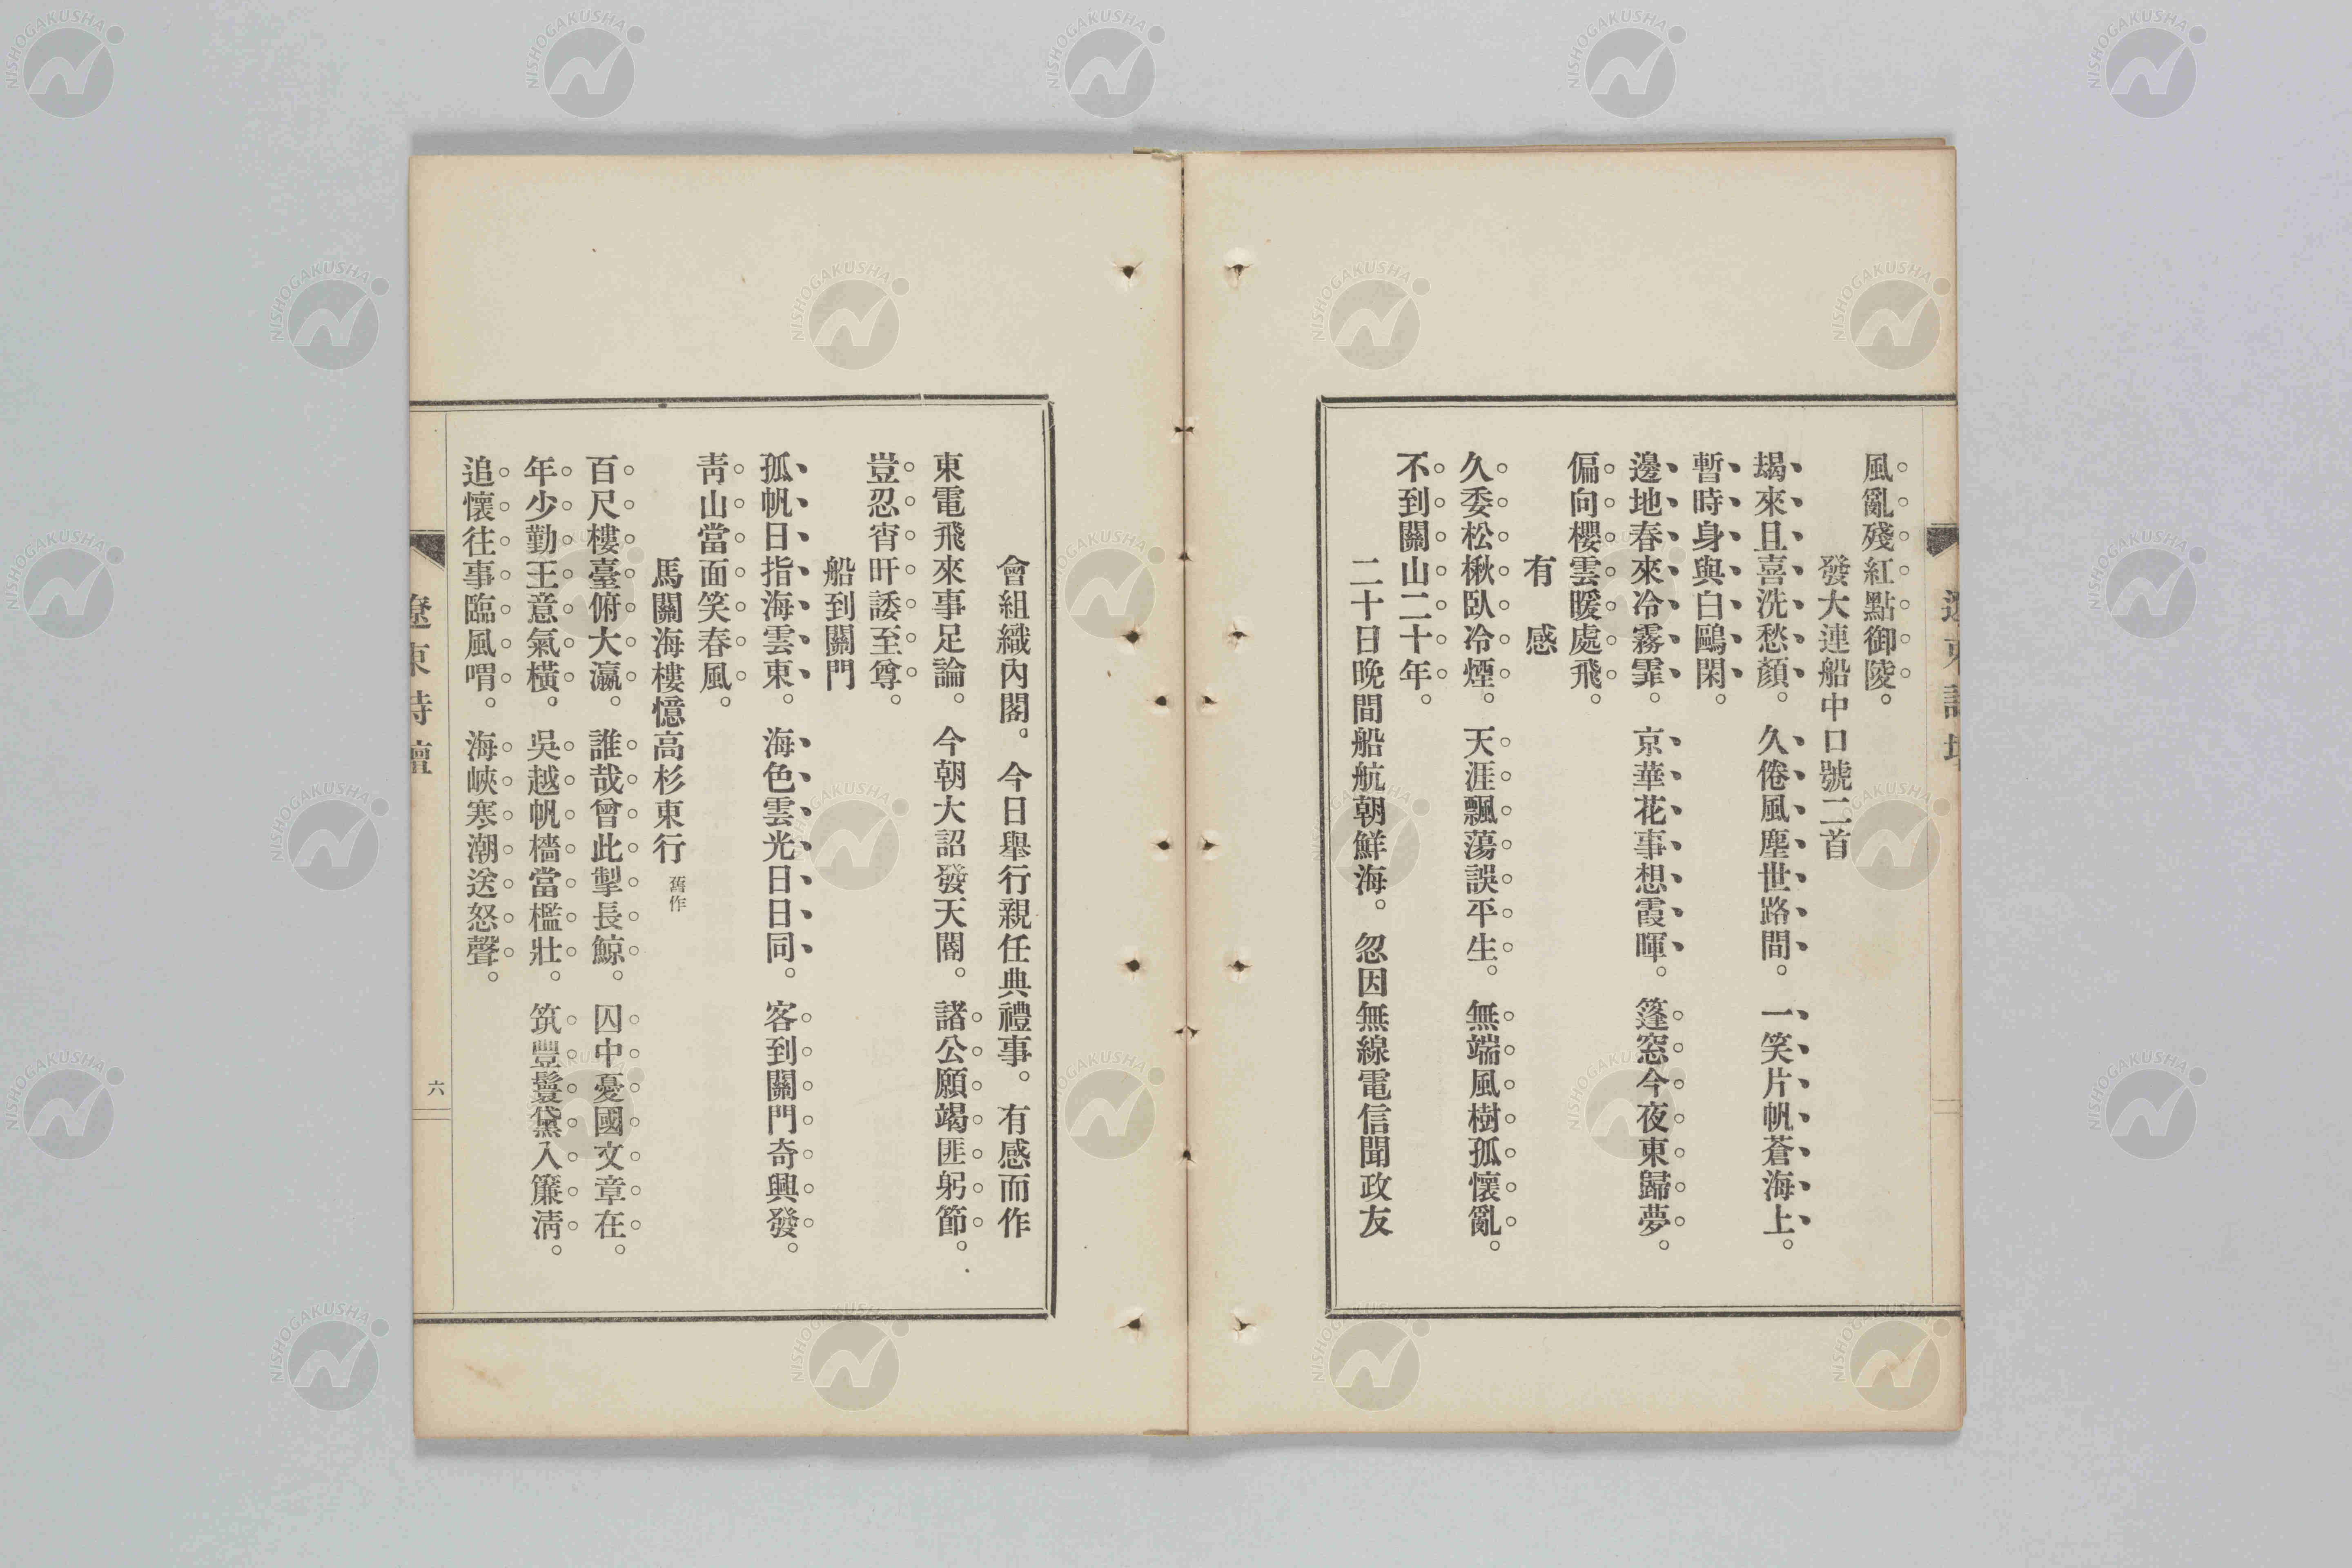 風亂殘紅點御陵。
發大連船中口號二首
朅來且喜洗愁顏。久倦風塵世路間。一笑片帆蒼海上。
暫時身與白鷗閑。
邊地春來冷霧霏。京華花事想霞暉。篷窓今夜東歸夢。
偏向櫻雲暖處飛。
有感
久委松楸臥冷煙。天涯飄蕩誤平生。無端風樹孤懷亂。
不到關山二十年。
二十日晩間船航朝鮮海。忽因無線電信聞政友
會組織內閣。今日舉行親任典禮事。有感而作
東電飛來事足論。今朝大詔發天閽。諸公願竭匪躬節。
豈忍宵旰諉至尊。
船到關門
孤帆日指海雲東。海色雲光日日同。客到關門奇興發。
靑山當面笑春風。
馬關海樓憶高杉東行 舊作
百尺樓臺俯大瀛。誰哉曾此掣長鯨。囚中憂國文章在。
年少勤王意氣橫。吳越帆檣當檻壯。筑豐鬟黛入簾淸。
追懷往事臨風喟。海峽寒潮送怒聲。
遼東詩壇
六
NISHOGAKUSHA